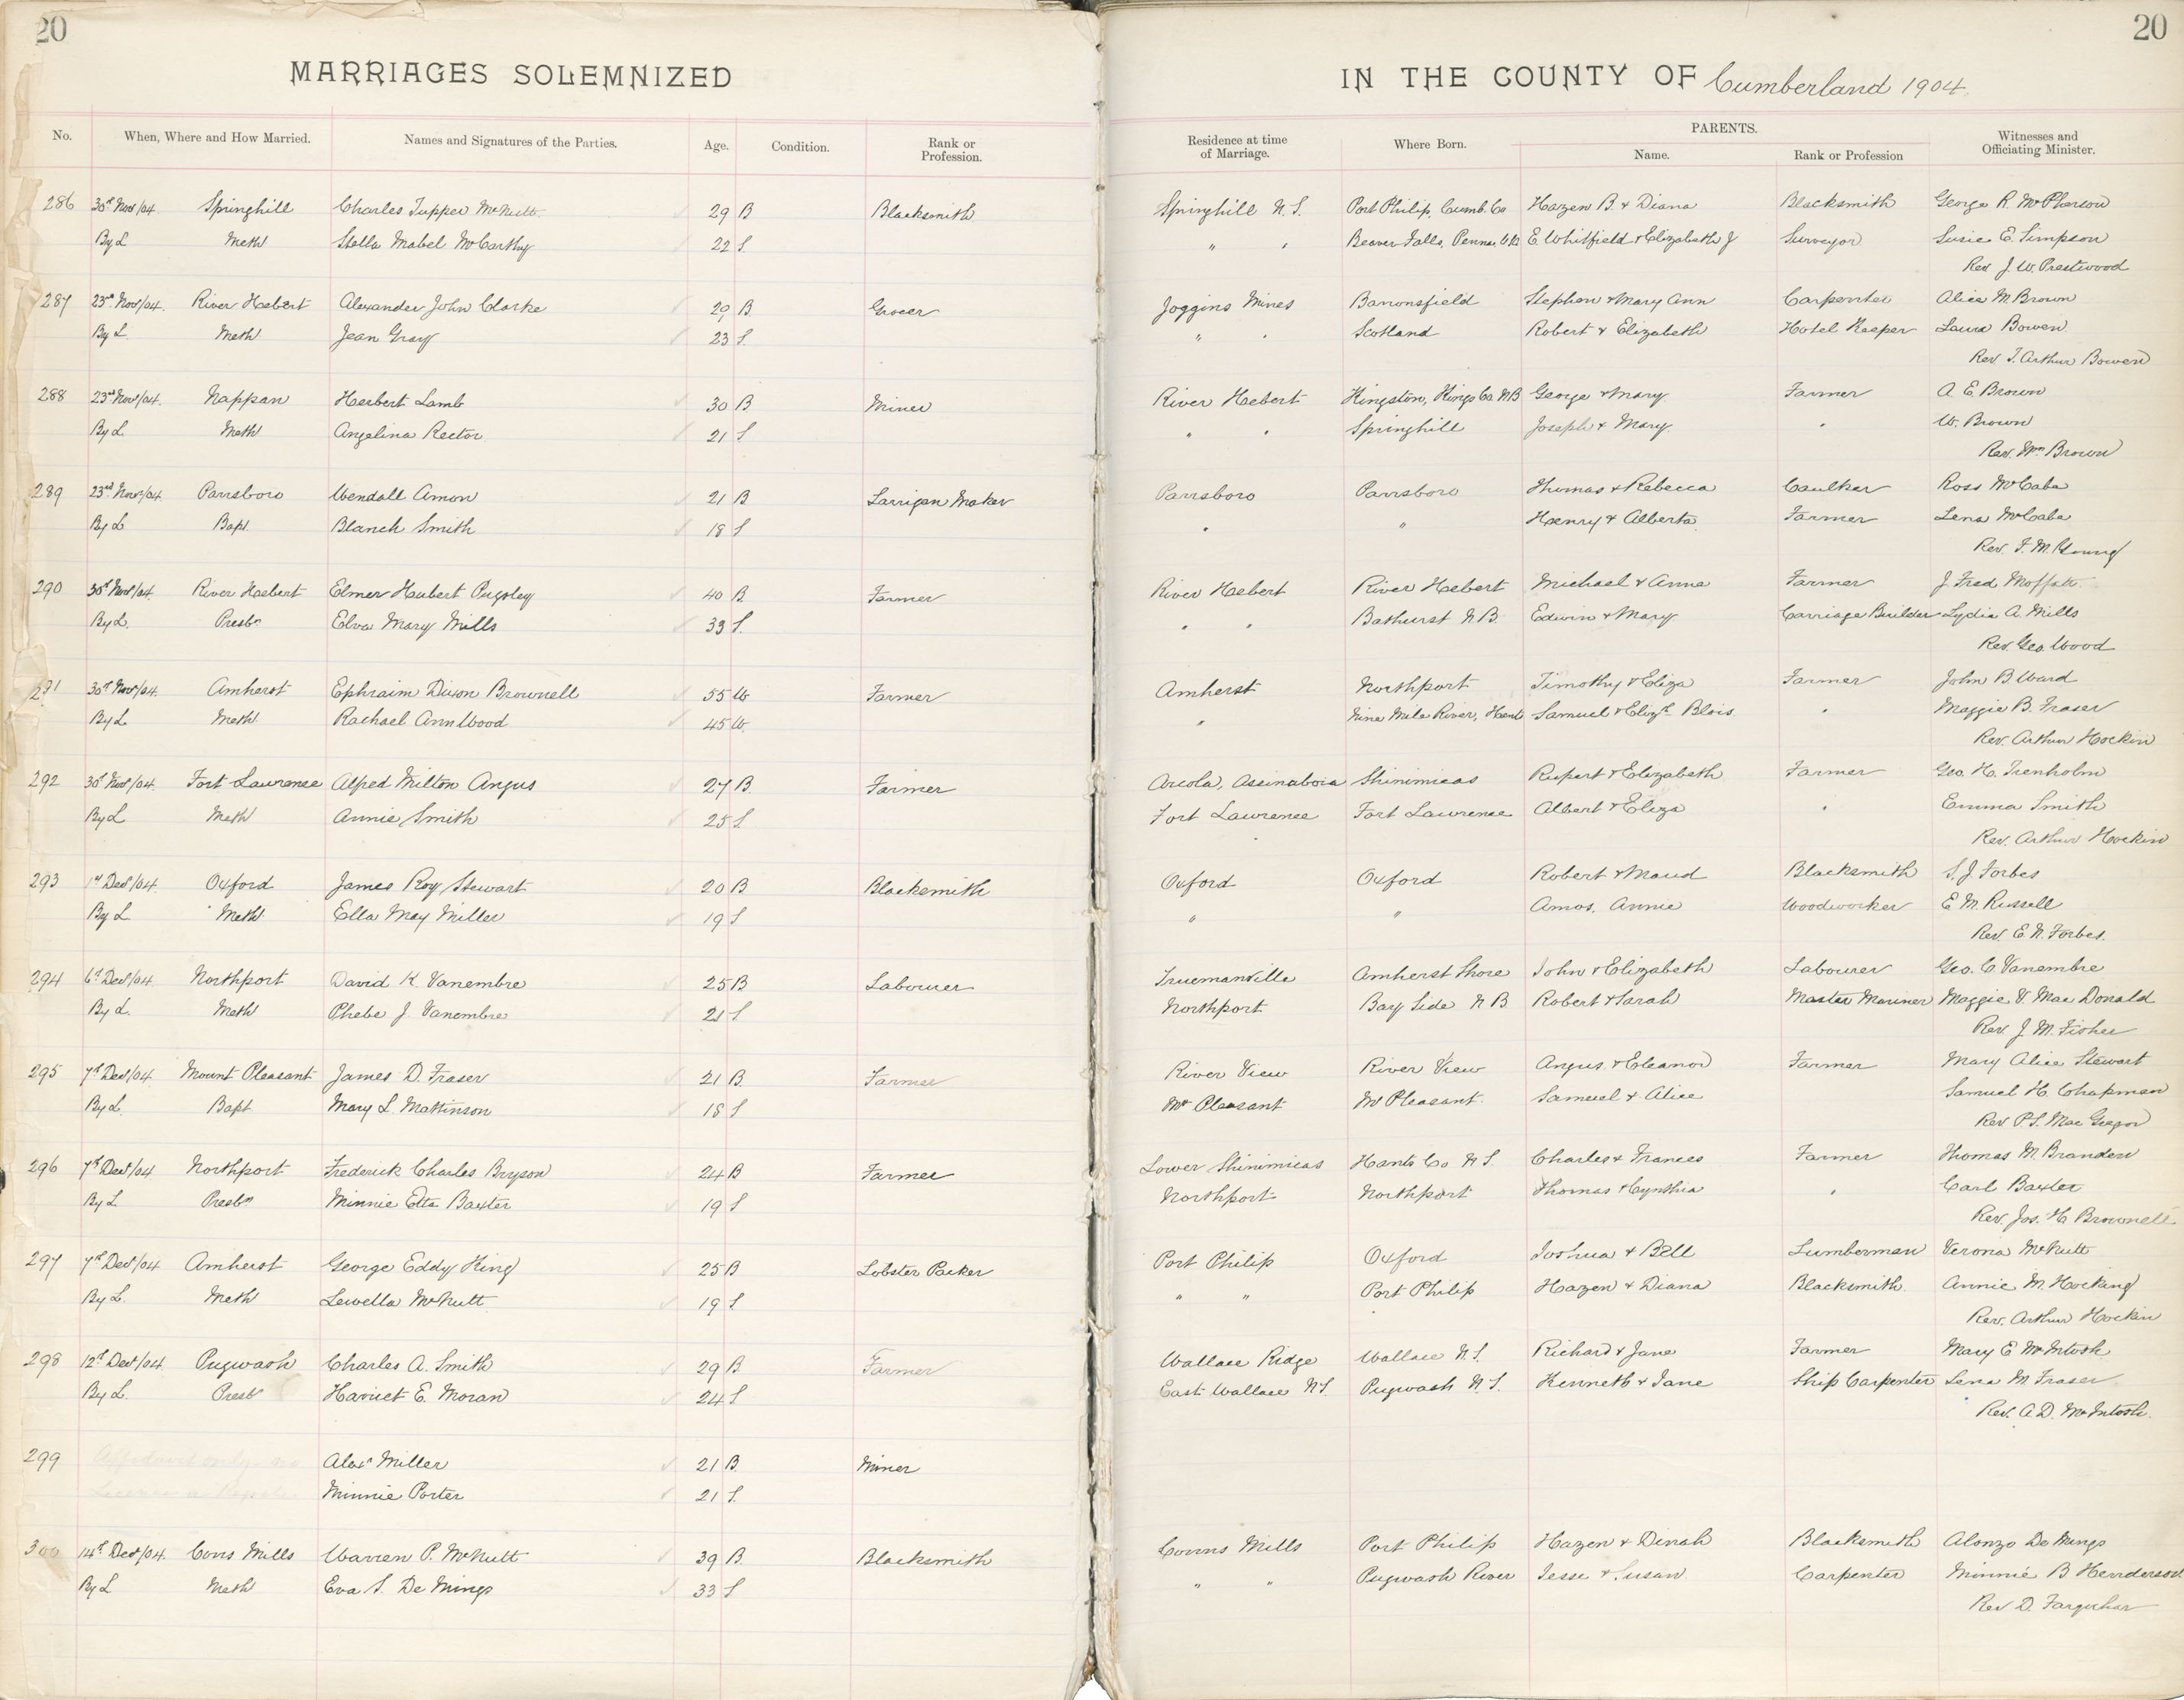 20
20
MARRIAGES SOLEMNIZED
IN THE COUNTY OF Cumberland 1904.
No. When, Where and How Married. Names and Signatures of the Parties. Age. Condition. Rank or Profession. Residence at time of Marriage. Where Born. PARENTS. Name. Rank or Profession Witnesses and Officiating Minister.
286 30th Nov/04 Springhill Charles Tupper McNutt 29 B Blacksmith Springhill N.S. Port Philip, Cumb. Co Hazen B. & Diana Blacksmith George R. McPherson
By L Meth Stella Mabel McCarthy 22 S. " " Beaver Falls, Penna U.S. E. Whitfield & Elizabeth J Surveyor Susie E. Simpson
Rev J. W. Prestwood
287 23rd Nov/04. River Hebert Alexander John Clarke 29 B. Grocer Joggins Mines Barronsfield Stephen & Mary Ann Carpenter Alice M Brown
By L. Meth Jean Gray 23 S. " " Scotland Robert & Elizabeth Hotel Keeper Laura Bowen
Rev. T. Arthur Bowen
288 23rd Nov/04. Nappan Herbert Lamb 30 B Miner River Hebert Kingston, Kings Co. N.B George & Mary Farmer A. E. Brown
By L. Meth Angelina Rector 21 S " " Springhill Joseph & Mary " W. Brown
Rev. Wm Brown
289 23rd Nov/04 Parrsboro Wendall Amon 21 B Larrigan Maker Parrsboro Parrsboro Thomas & Rebecca Caulker Ross McCabe
By L Bapt. Blanch Smith 18 S " " Henry & Alberta Farmer Lena McCabe
Rev. F. M. Young
290 30th Nov/04. River Hebert Elmer Hubert Pugsley 40 B. Farmer River Hebert River Hebert Michael & Anna Farmer J. Fred Moffatt
By L. Presbn Elva Mary Mills 33 S. " " Bathurst N.B. Edwin & Mary Carriage Builder Lydia A. Mills
Rev. Geo. Wood
291 30th Nov/04. Amherst Ephraim Dixon Brownell 55 W Farmer Amherst Northport Timothy & Eliza Farmer John B Ward
By L Meth Rachael Ann Wood 45 W. " Nine Mile River, Hants Samuel & Elizth Blois " Maggie B. Fraser
Rev. Arthur Hockin
292 30th Nov/04. Fort Lawrence Alfred Milton Angus 27 B. Farmer Arcola, Assinaboia Shinimicas Rupert & Elizabeth Farmer Geo. H. Trenholm
By L Meth Annie Smith 25 S Fort Lawrence Fort Lawrence Albert & Eliza " Emma Smith
Rev. Arthur Hockin
293 1st Dec/04. Oxford James Roy Stewart 20 B Blacksmith Oxford Oxford Robert & Maud Blacksmith S. J. Forbes
By L Meth Ella May Miller 19 S " " Amos, Annie Woodworker E. M. Russell
Rev. E. N. Forbes.
294 6th Dec/04. Northport David K. Vanembre 25 B Labourer Truemanville Amherst Shore John & Elizabeth Labourer Geo. C. Vanembre
By L. Meth Phebe J. Vanembre 21 S Northport Bay Side N B Robert & Sarah Master Mariner Maggie V. Mac Donald
Rev. J. M. Fisher
295 7th Dec/04. Mount Pleasant James D. Fraser 21 B. Farmer River View River View Angus & Eleanor Farmer Mary Alice Stewart
By L. Bapt Mary L. Mattinson 18 S Mt Pleasant Mt Pleasant Samuel & Alice Samuel H. Chapman
Rev P. S. Mac Gregor
296 7th Dec/04 Northport Frederick Charles Bryson 24 B Farmer Lower Shinimicas Hants Co N.S. Charles & Frances Farmer Thomas M. Branden
By L Presbn Minnie Etta Baxter 19 S Northport Northport Thomas & Cynthia " Carl Baxter
Rev. Jos. H. Brownell
297 7th Dec/04 Amherst George Eddy King 25 B Lobster Packer Port Philip Oxford Joshua & Bell Lumberman Verona McNutt
By L. Meth Lewella McNutt 19 S " " Port Philip Hazen & Diana Blacksmith. Annie M. Hocking
Rev. Arthur Hockin
298 12th Dec/04. Pugwash Charles A. Smith 29 B Farmer Wallace Ridge Wallace N.S. Richard & Jane Farmer Mary E McIntosh
By L. Presb Harriet E. Moran 24 S East Wallace N.S. Pugwash N.S. Kenneth & Jane Ship Carpenter Lena M Fraser
Rev. A. D. McIntosh.
299 Affidavit only no Alexr Miller 21 B. Miner
Minnie Porter 21 S.
300 14th Dec/04. Conns Mills Warren P. McNutt 39 B. Blacksmith Conns Mills Port Philip Hazen & Dinah Blacksmith Alonzo De Mings
By L Meth Eva S. De Mings 33 S " " Pugwash River Jesse & Susan Carpenter Minnie B Henderson
Rev D. Farquhar